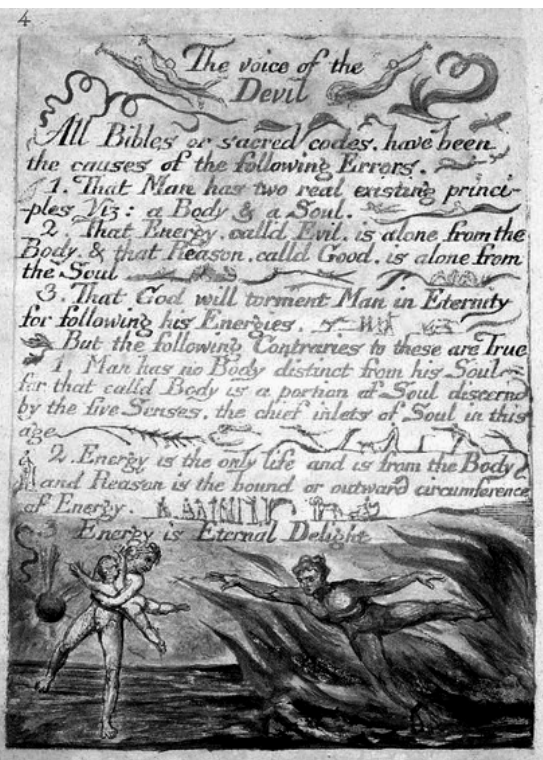 4
The voice of the
Devil
All Bibles or sacred codes. have been
the causes of the following Errors.
1. That Man has two real existing princi-
-ples Viz: a Body & a Soul.
2. That Energy. calld Evil. is alone from the
Body. & that Reason. calld Good. is alone from
the Soul
3. That God will torment Man in Eternity
for following his Energies.
But the following Contraries to these are True
1. Man has no Body distinct from his Soul
for that calld Body is a portion of Soul discernd
by the five Senses. the chief inlets of Soul in this
age
2. Energy is the only life and is from the Body
and Reason is the bound or outward circumference
of Energy.
3 Energy is Eternal Delight